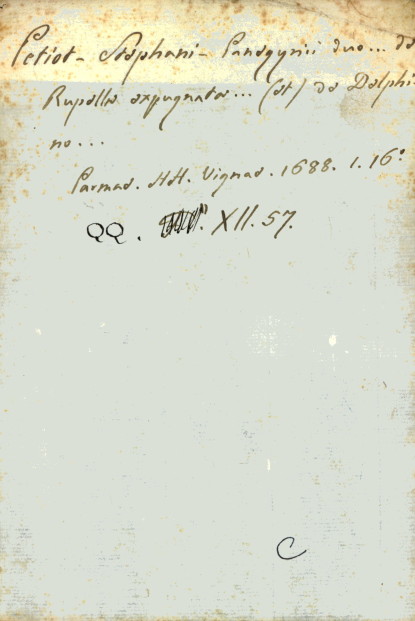 Petiot - Stephani - Panegyrici duo... de
Rupella expugnata... (et) de Delphi-
no...
Parmae. HH. Vignae. 1688. 1. 16°
QQ. XII. 57.
C